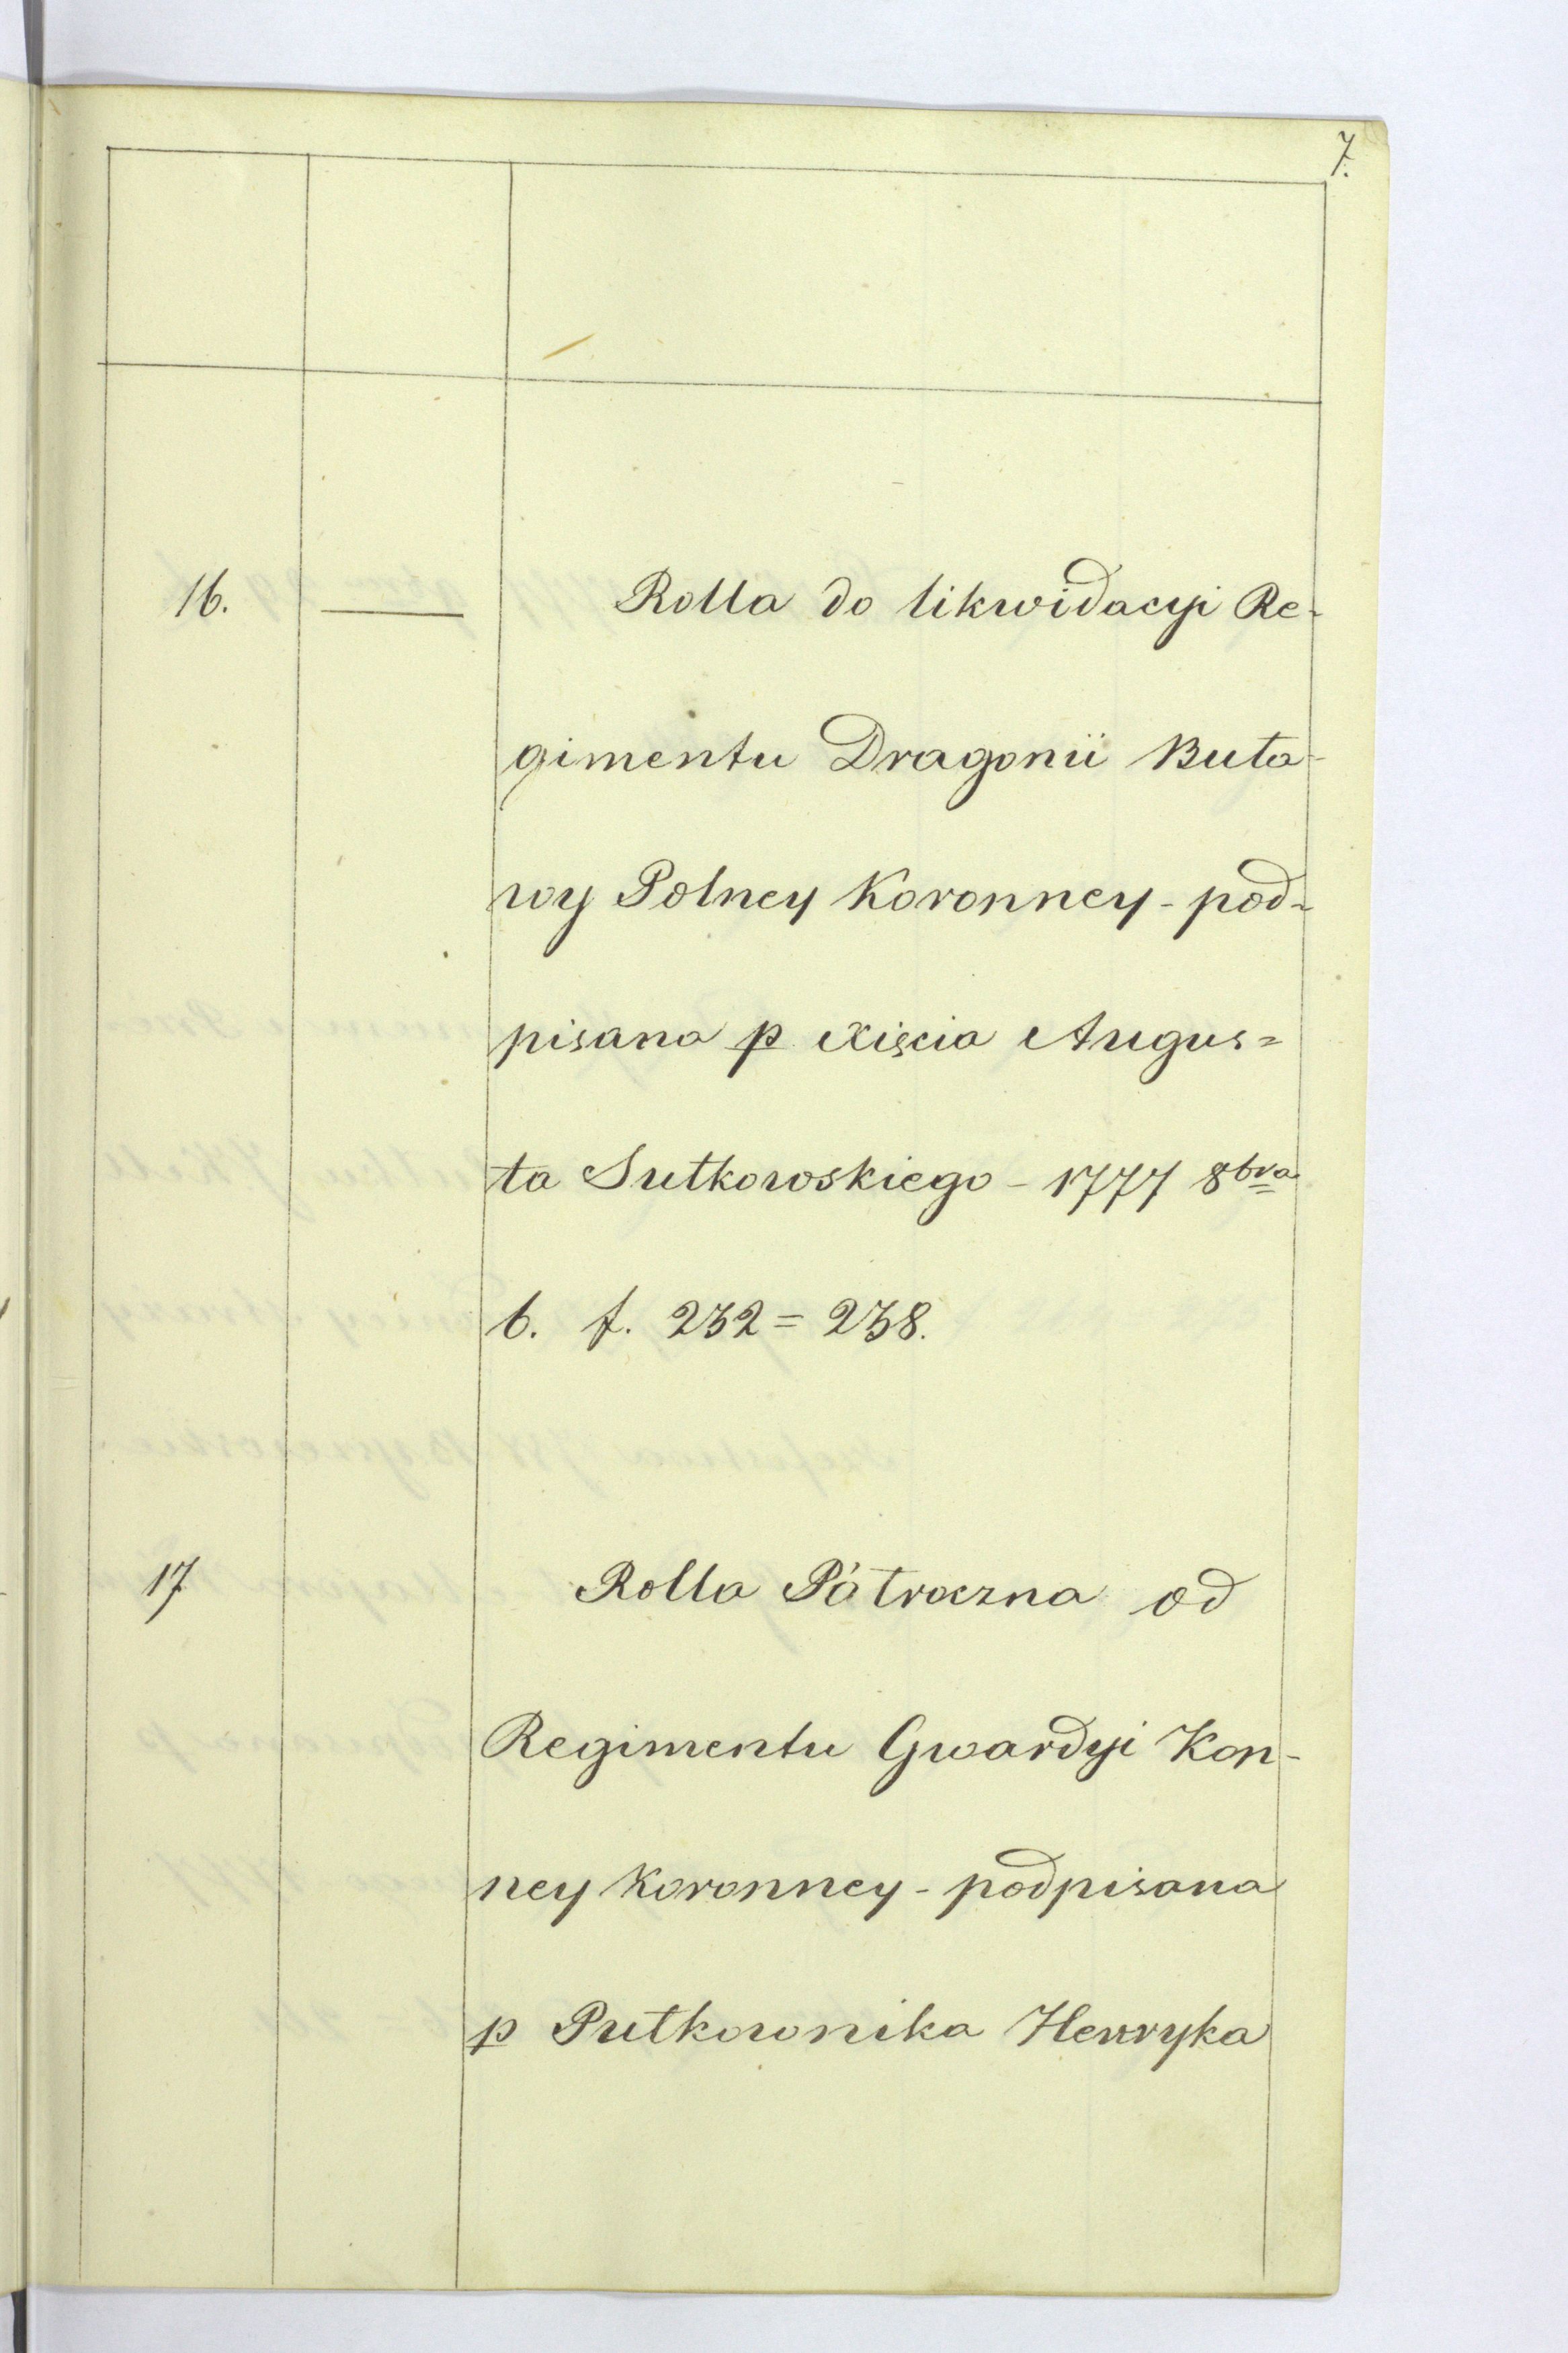 7.
16. — Rolla do likwidacyi Re-
gimentu Dragonii Buła-
wy Polney Koronney - pod-
pisana p Xięcia Augus=
ta Sułkowskiego - 1777 8bra
6. f. 232 = 238.
17 Rolla Półroczna od
Regimentu Gwardyi Kon-
ney Koronney - podpisana
p Pułkownika Henryka